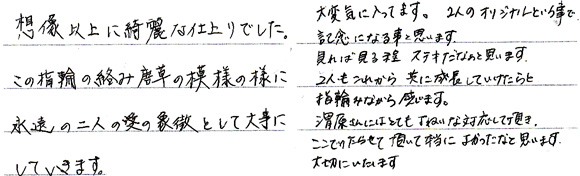 想像以上に綺麗な仕上りでした。
この指輪の絡み唐草の模様の様に
永遠の二人の愛の象徴として大事に
していきます。
大変気に入ってます。2人のオリジナルという事で
記念になる事と思います
見れば見る程 ステキだなぁと思います.
2人もこれから 共に成長していけたらと
指輪みながら感じます。
澤原さんにはとてもていねいな対応して頂き.
ここでつくらせて頂いて本当に よかったなと思います.
大切にいたします